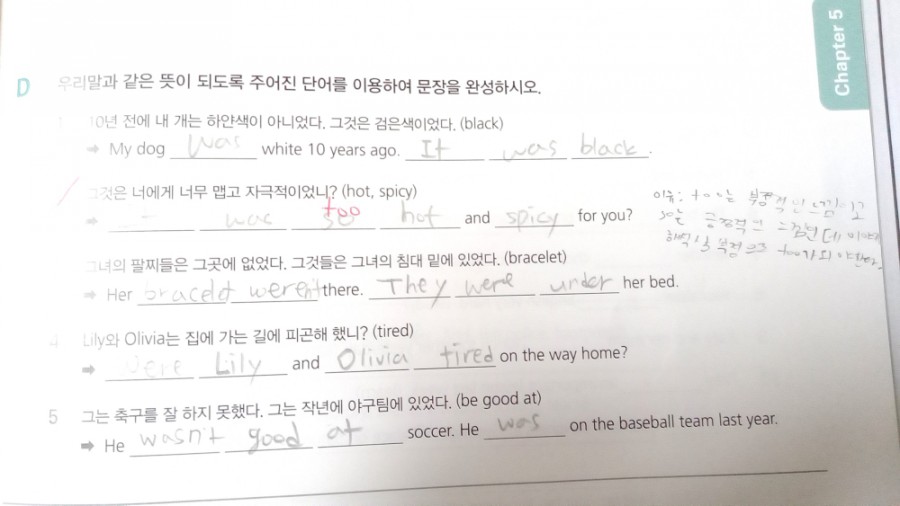 Chapter 5
D 우리말과 같은 뜻이 되도록 주어진 단어를 이용하여 문장을 완성하시오.
1 10년 전에 내 개는 하얀색이 아니었다. 그것은 검은색이었다. (black)
➡ My dog was white 10 years ago. It was black.
그것은 너에게 너무 맵고 자극적이었니? (hot, spicy)
➡ was too hot and spicy for you?
이유: too는 부정적인 느낌이고
so는 긍정적인 느낌인데
부정으로 too가 되어야한다.
그녀의 팔찌들은 그곳에 없었다. 그것들은 그녀의 침대 밑에 있었다. (bracelet)
➡ Her bracelet weren't there. They were under her bed.
4 Lily와 Olivia는 집에 가는 길에 피곤해 했니? (tired)
➡ Were Lily and Olivia tired on the way home?
5 그는 축구를 잘 하지 못했다. 그는 작년에 야구팀에 있었다. (be good at)
➡ He wasn't good at soccer. He was on the baseball team last year.